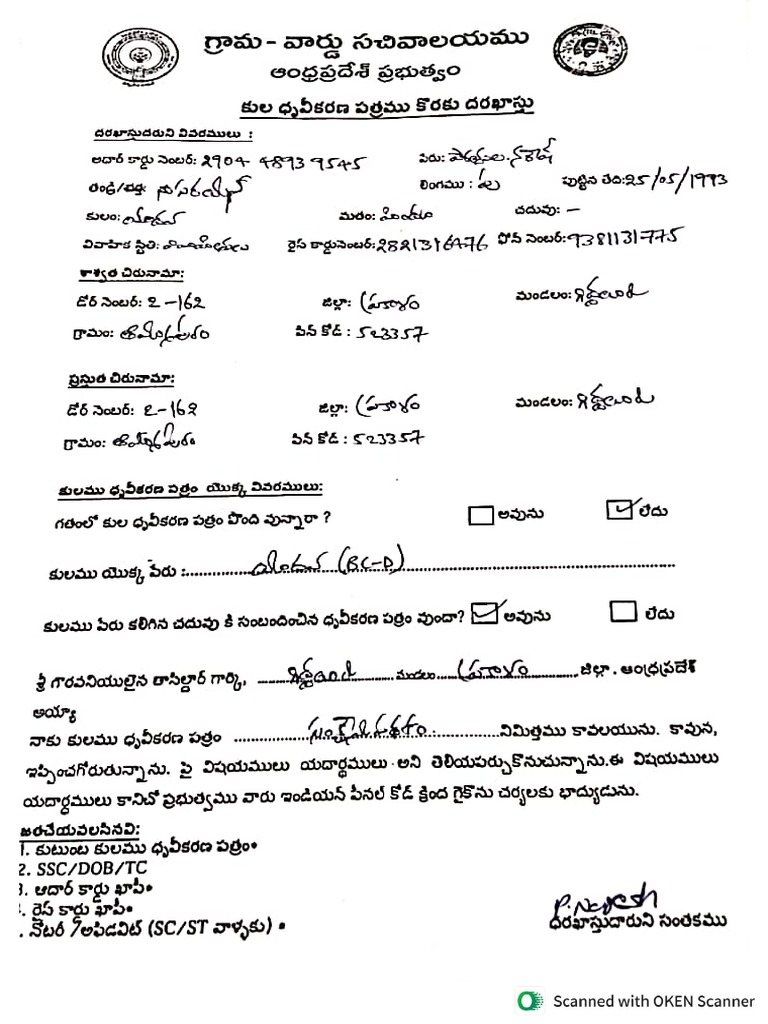 గ్రామ - వార్డు సచివాలయము
ఆంధ్రప్రదేశ్ ప్రభుత్వం
కుల ధృవీకరణ పత్రము కొరకు దరఖాస్తు
దరఖాస్తుదారుని వివరములు :
అదార్ కార్డు నెంబర్: 2904 4893 9545 పేరు:
తండ్రి/భర్త: లింగము : పు పుట్టిన తేది: 25/05/1993
కులం: యాదవ మతం: హిందూ చదువు: -
వివాహిక స్థితి: రైస్ కార్డునెంబర్: 2821316476 ఫోన్ నెంబర్: 9381131775
శాశ్వత చిరునామా:
డోర్ నెంబర్: 2-162 జిల్లా: ప్రకాశం మండలం: గిద్దలూరు
గ్రామం: పిన్ కోడ్ : 523357
ప్రస్తుత చిరునామా:
డోర్ నెంబర్: 2-162 జిల్లా: ప్రకాశం మండలం: గిద్దలూరు
గ్రామం: పిన్ కోడ్ : 523357
కులము ధృవీకరణ పత్రం యొక్క వివరములు:
గతంలో కుల ధృవీకరణ పత్రం పొంది వున్నారా ? అవును ✓ లేదు
కులము యొక్క పేరు : యాదవ (BC-D)
కులము పేరు కలిగిన చదువు కి సంబందించిన ధృవీకరణ పత్రం వుందా? ✓ అవును లేదు
శ్రీ గౌరవనియులైన తాసిల్దార్ గార్కి, గిద్దలూరు మండలం ప్రకాశం జిల్లా . ఆంధ్రప్రదేశ్
అయ్యా
నాకు కులము ధృవీకరణ పత్రం నిమిత్తము కావలయును. కావున,
ఇప్పించగోరుతున్నాను. పై విషయములు యదార్థములు అని తెలియపర్చుకొనుచున్నాను.ఈ విషయములు
యదార్థములు కానిచో ప్రభుత్వము వారు ఇండియన్ పీనల్ కోడ్ క్రింద గైకొను చర్యలకు భాద్యుడును.
జతచేయవలసినవి:
1. కుటుంబ కులము ధృవీకరణ పత్రం•
2. SSC/DOB/TC
3. ఆదార్ కార్డు ఖాపీ•
. రైస్ కార్డు ఖాపీ•
. నోటరీ అఫిడవిట్ (SC/ST వాళ్ళకు) •
P. Nagesh
దరఖాస్తుదారుని సంతకము
Scanned with OKEN Scanner